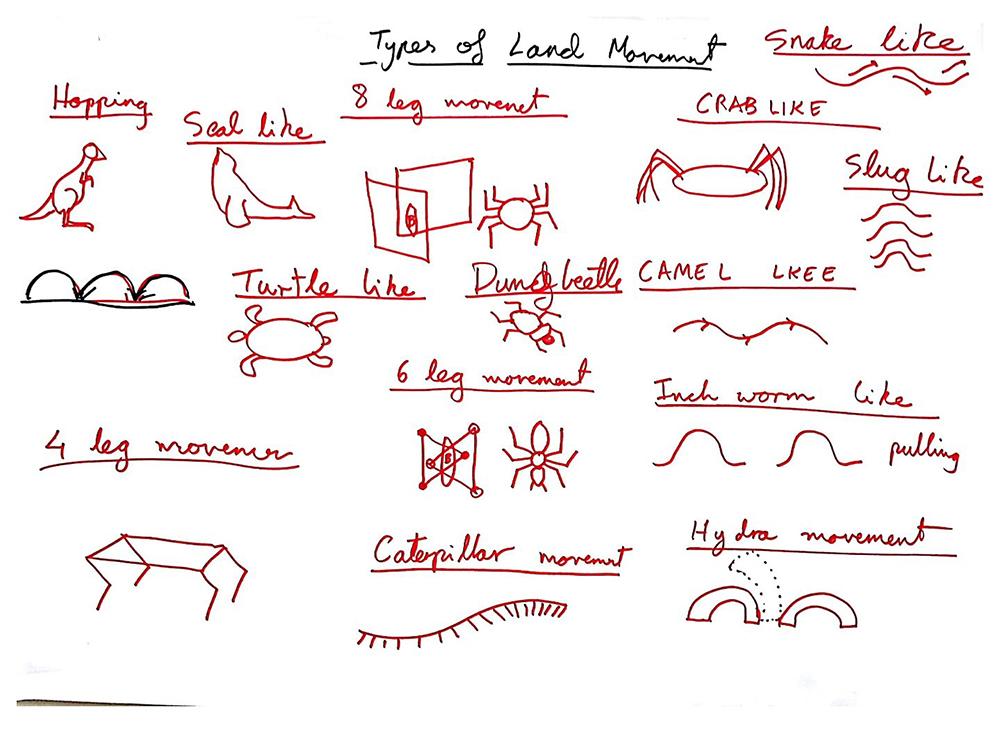 Types of Land Movement
Snake like
Hopping
Seal like
8 leg movenet
CRAB LIKE
Slug Like
B
Turtle like
Dung beetle
CAMEL LKEE
6 leg movement
B
Inch worm like
pulling
4 leg movemer
Caterpillar movement
Hydra movement